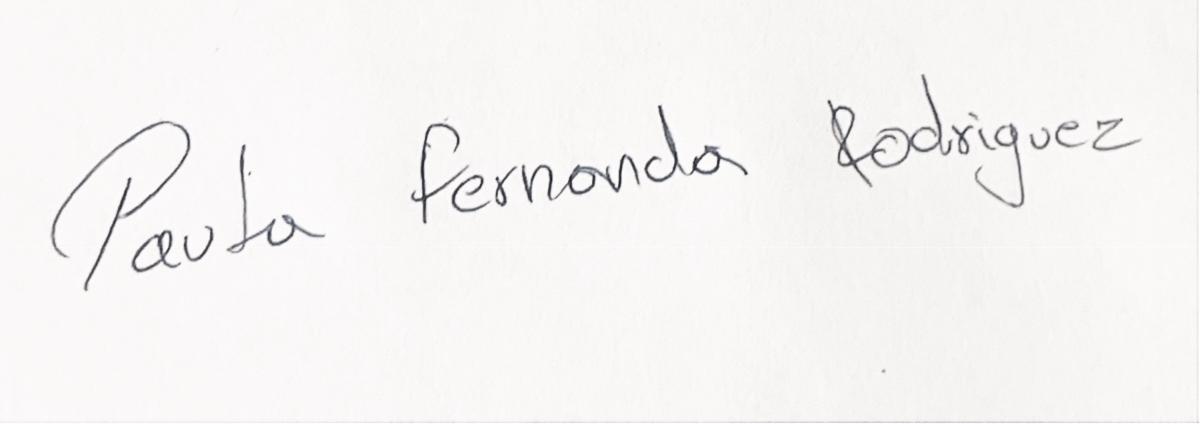 Paula Fernanda Rodriguez